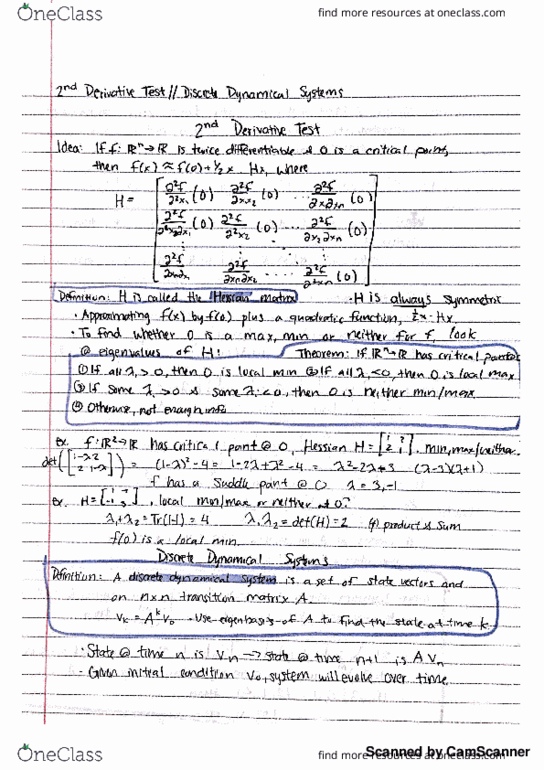 OneClass
find more resources at oneclass.com
2nd Derivative Test // Discrete Dynamical Systems
2nd Derivative Test
Idea: If f: ℝⁿ→ℝ is twice differentiable & 0 is a critical point,
then f(x) ≈ f(0) + 1/2 x · Hx, where
H =
∂²f/∂²x₁ (0) ∂²f/∂x₁x₂ (0) ... ∂²f/∂x₁∂xₙ (0)
∂²f/∂x₂∂x₁ (0) ∂²f/∂²x₂ (0) ... ∂²f/∂x₂∂xₙ (0)
∂²f/∂xₙ∂x₁ ∂²f/∂xₙ∂x₂ ... ∂²f/∂²xₙ (0)
Definition: H is called the Hessian matrix · H is always symmetric
· Approximating f(x) by f(0) plus a quadratic function, ½x · Hx
· To find whether 0 is a max, min or neither for f, look
@ eigenvalues of H! Theorem: If ℝⁿ→ℝ has critical point @
① If all λ, > 0, then 0 is local min ② If all λ, < 0, then 0 is local max
③ If some λ, > 0 & some λ, < 0, then 0 is neither min/max
④ Otherwise, not enough info
ex. f: ℝ²→ℝ has critical point @ 0, Hessian H = [1 2 2 1], min, max/neither
det([1-λ 2 2 1-λ]) = (1-λ)²-4 = 1-2λ+λ²-4 = λ²-2λ+3 (λ-3)(λ+1)
f has a Suddle point @ 0 λ = 3, -1
ex. H = , local min/max or neither at 0?
λ₁+λ₂ = Tr(H) = 4 λ₁λ₂ = det(H) = 2 product & sum
f(0) is a local min
Discrete Dynamical Systems
Definition: A discrete dynamical system is a set of state vectors and
an n×n transition matrix A.
vₖ = Aᵏv₀ · Use eigenbasis of A to find the state at time k
· State @ time n is vₙ → state @ time n+1 is A vₙ
· Given initial condition v₀, system will evolve over time
OneClass
find more resources at oneclass.com
Scanned by CamScanner